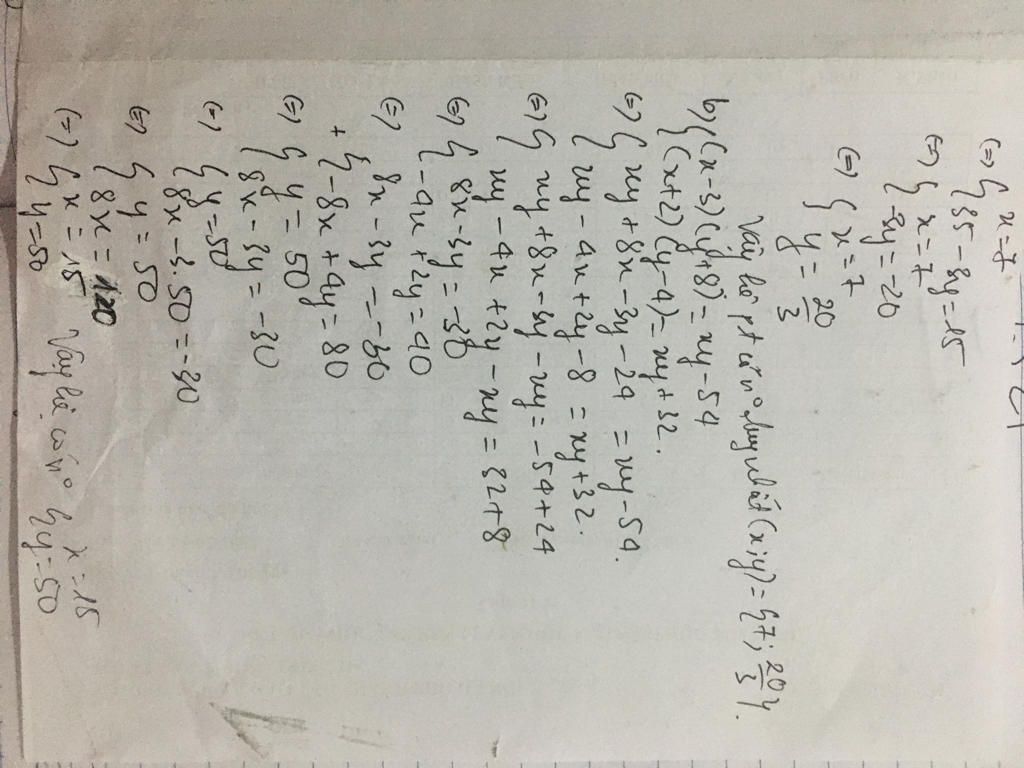 (=) { x = 7
35 - 3y = 15
(=) { x = 7
-3y = -20
(=) { x = 7
y = 20/3
Vậy hệ pt có n° duy nhất (x;y) = {7; 20/3}.
b) { (x-3)(y+8) = xy - 54
(x+2)(y-4) = xy + 32.
(=) { xy + 8x - 3y - 24 = xy - 54.
xy - 4x + 2y - 8 = xy + 32.
(=) { xy + 8x - 3y - xy = -54 + 24
xy - 4x + 2y - xy = 32 + 8
(=) { 8x - 3y = -30
-4x + 2y = 40
(=) { 8x - 3y = -30
+ -8x + 4y = 80
(=) { y = 50
8x - 3y = -30
(=) { y = 50
8x - 3.50 = -30
(=) { y = 50
8x = 120
(=) { x = 15
y = 50
Vậy hệ có n° { x = 15
y = 50